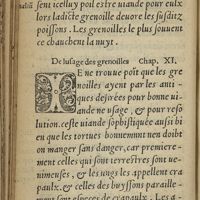 sent icelluy poil estre viande pour eulx
lors ladicte grenoille deuore les susditz
poissons. Les grenoilles le plus souuent
ce chauchent la nuyt.
De lusage des grenoilles Chap. XI.
E ne trouue poīt que les gre
noilles ayent par les anti-
ques desirées pour bonne ui-
ande ne usage, & pour reso
lution. ceste uiande sophistiquée aussi bi
en que les tortues bonnemnt nen doibt
on manger sans danger, car premiere-
ment celles qui sont terrestres sont ue-
nimeuses, & les ungs les appellent cra
paulx. & celles des buyssons pareille-